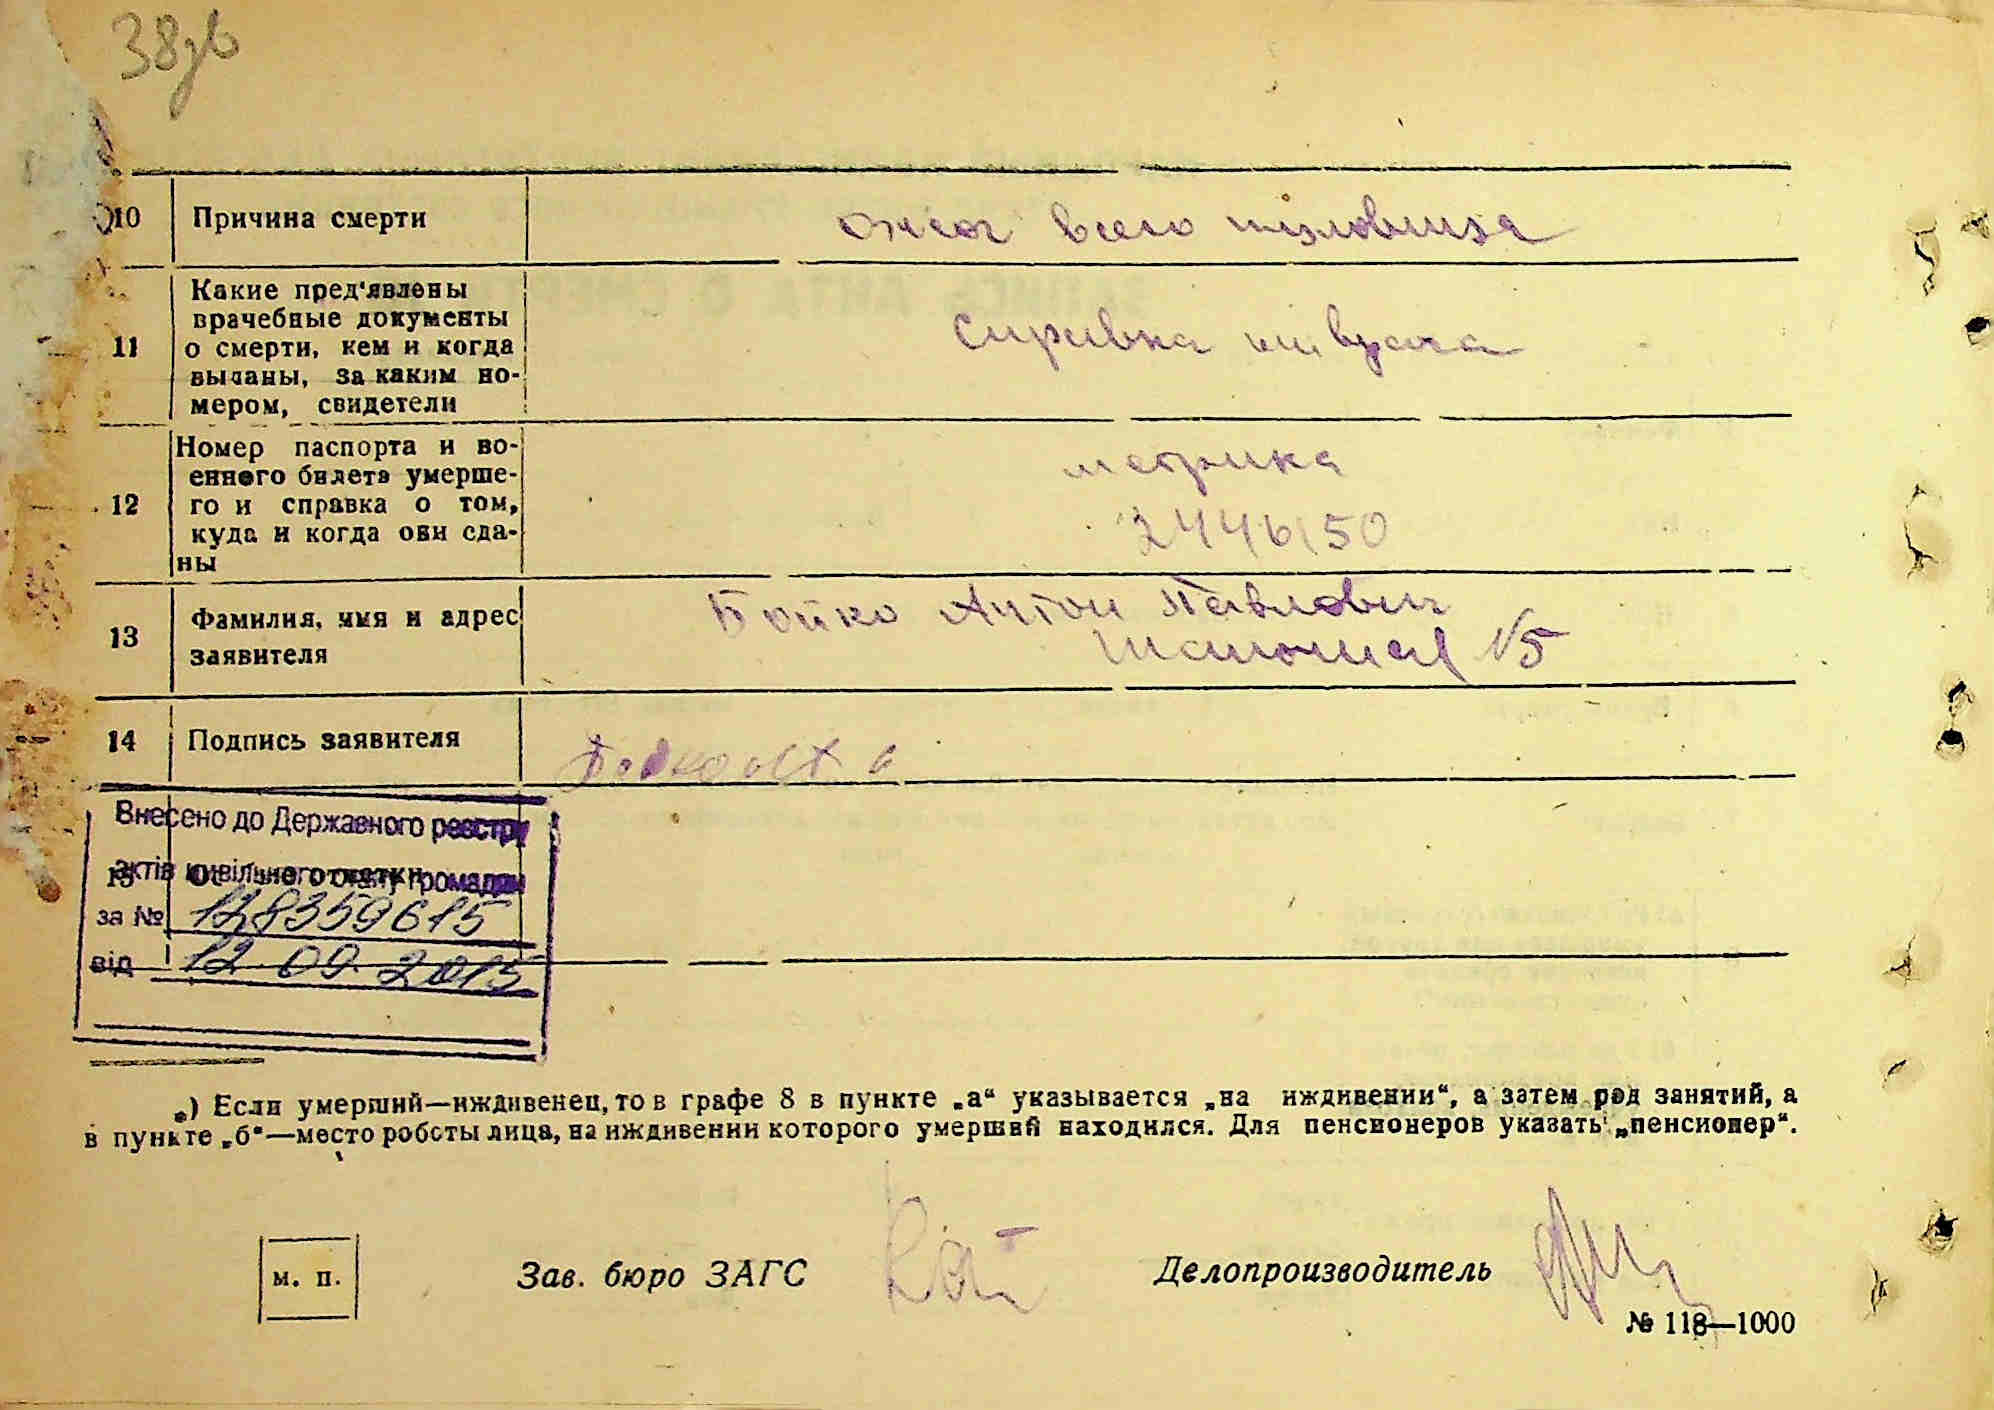 38зв
10 Причина смерти ожог всего туловища
11 Какие пред'явлены
врачебные документы
о смерти, кем и когда
выданы, за каким но-
мером, свидетели
Справка врача
12 Номер паспорта и во-
енного билета умерше-
го и справка о том,
куда и когда они сда-
ны
метрика
13 Фамилия, имя и адрес
заявителя
Бойко Антон Павлович
№5
14 Подпись заявителя
Внесено до Державного реєстру
актів цивільного стану громадян
15 Особые отметки
за № 128359615
від 12.09.2015
*) Если умерший—иждивенец, то в графе 8 в пункте „а“ указывается „на иждивении“, а затем род занятий, а
в пункте „б“—место роботы лица, на иждивении которого умерший находился. Для пенсионеров указать „пенсионер“.
м. п.
Зав. бюро ЗАГС
Делопроизводитель
№ 118—1000